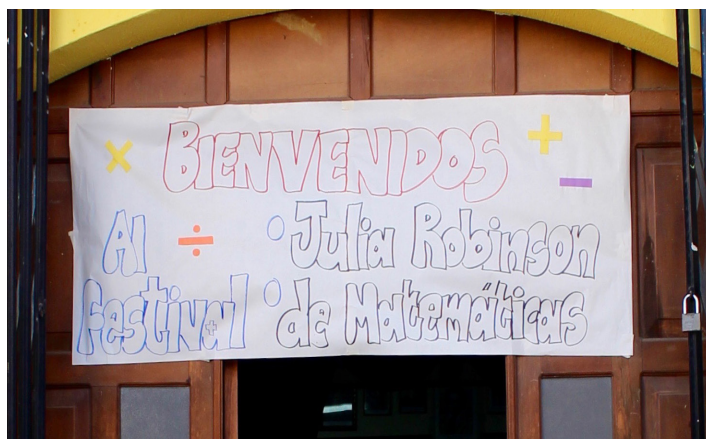 BIENVENIDOS
Al Julia Robinson
festival de Matemáticas